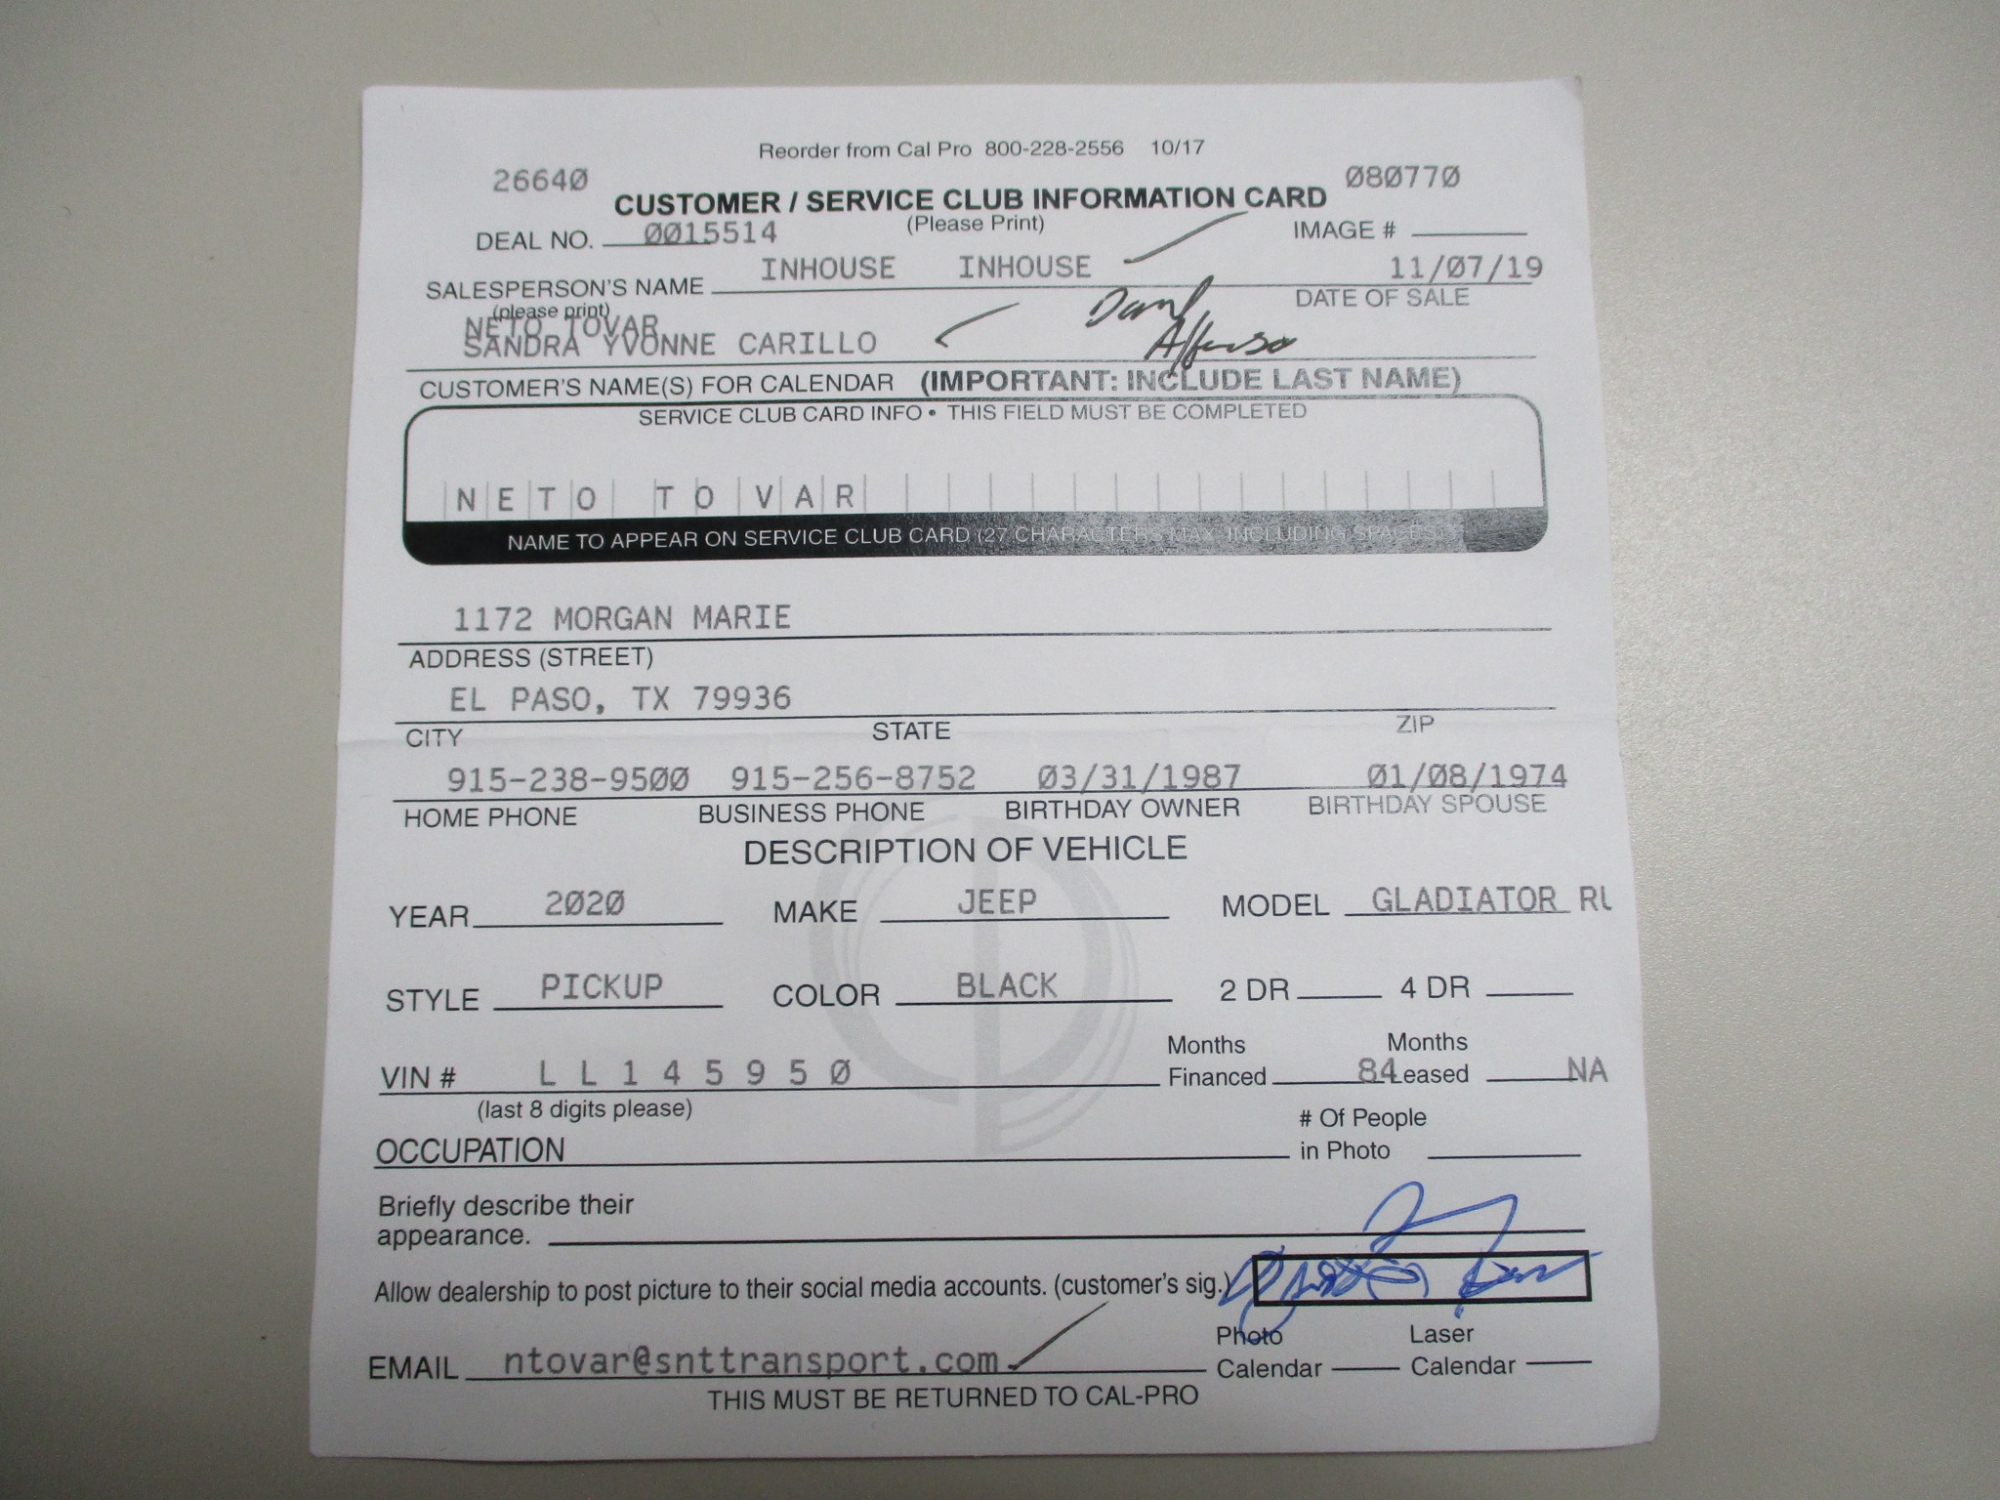 Reorder from Cal Pro 800-228-2556 10/17
26640 080770
CUSTOMER / SERVICE CLUB INFORMATION CARD
(Please Print)
DEAL NO. 0015514 IMAGE #
SALESPERSON'S NAME INHOUSE INHOUSE 11/07/19
(please print) DATE OF SALE
NETO TOVAR
SANDRA YVONNE CARILLO
CUSTOMER'S NAME(S) FOR CALENDAR (IMPORTANT: INCLUDE LAST NAME)
SERVICE CLUB CARD INFO • THIS FIELD MUST BE COMPLETED
NETO TOVAR
NAME TO APPEAR ON SERVICE CLUB CARD (27 CHARACTERS MAX. INCLUDING SPACES)
1172 MORGAN MARIE
ADDRESS (STREET)
EL PASO, TX 79936
CITY STATE ZIP
915-238-9500 915-256-8752 03/31/1987 01/08/1974
HOME PHONE BUSINESS PHONE BIRTHDAY OWNER BIRTHDAY SPOUSE
DESCRIPTION OF VEHICLE
YEAR 2020 MAKE JEEP MODEL GLADIATOR RU
STYLE PICKUP COLOR BLACK 2 DR 4 DR
Months Months
VIN # LL145950 Financed 84 Leased NA
(last 8 digits please)
# Of People
OCCUPATION in Photo
Briefly describe their
appearance.
Allow dealership to post picture to their social media accounts. (customer's sig.)
Photo Laser
EMAIL ntovar@snttransport.com Calendar Calendar
THIS MUST BE RETURNED TO CAL-PRO